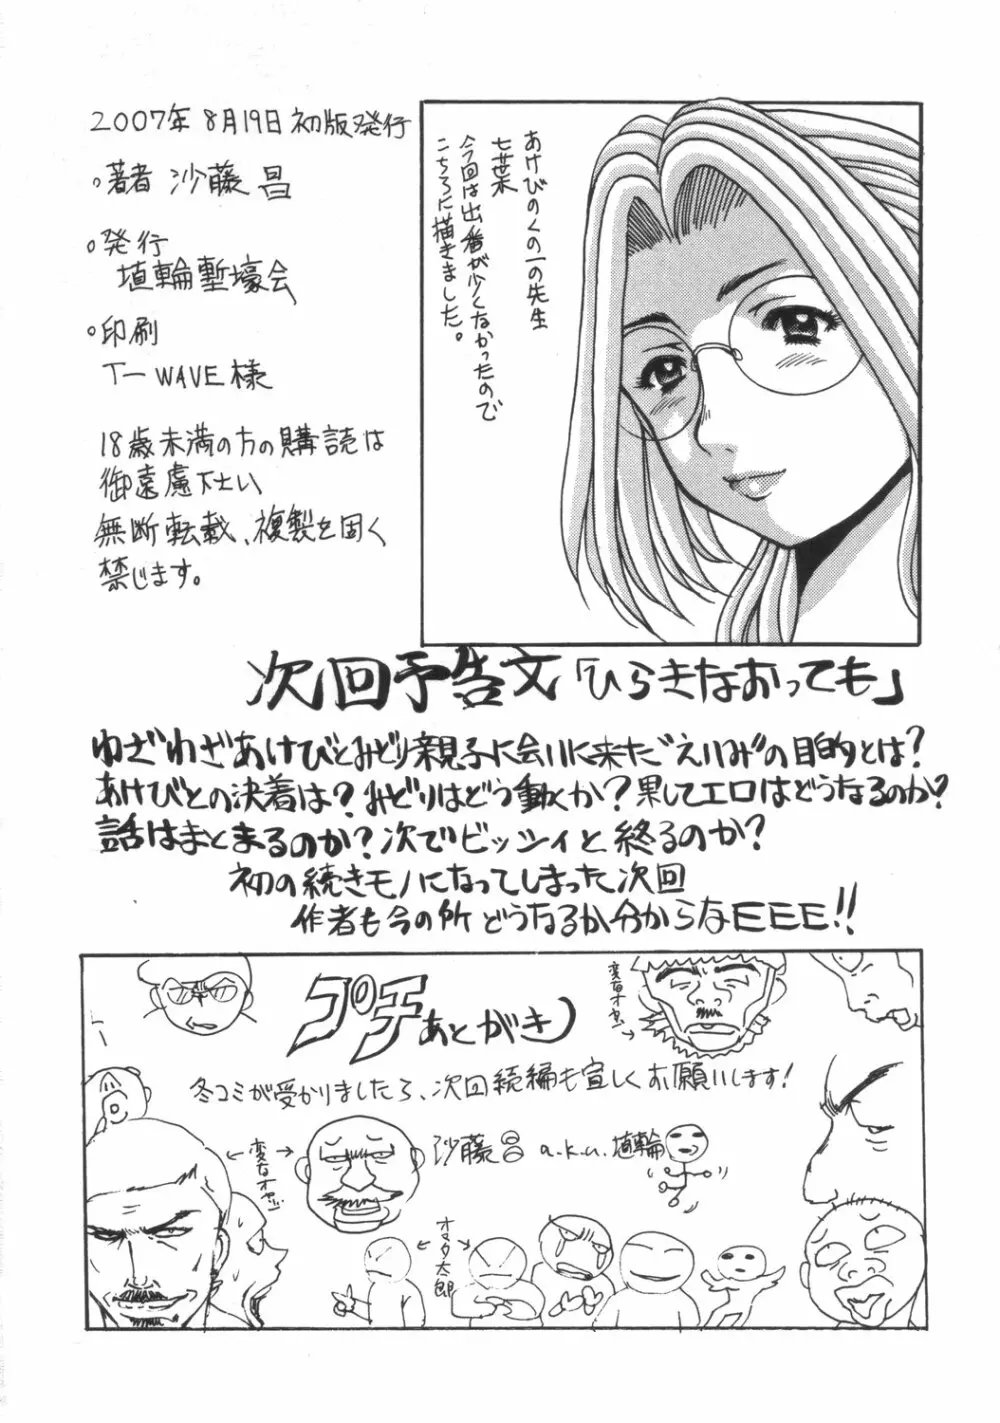 2007年 8月19日 初版発行
。著者 沙藤 昌
。発行
埴輪塹壕会
。印刷
T-WAVE様
18歳未満の方の購読は
御遠慮下さい
無断転載、複製を固く
禁じます。
あけびのくの一の先生
七葉
今回は出番が少くなかったので
こちらに描きました。
次回予告文「ひらきなおっても」
わざわざあけびとみどり親子に会いに来た“えいみ”の目的とは?
あけびとの決着は?みどりはどう動くか?果してエロはどうなるのか?
話はまとまるのか?次でビッシィと終るのか?
初の続きモノになってしまった次回
作者も今の所どうなるか分からなEEE!!
プチあとがき
変なオヤジ
冬コミが受かりましたら、次回続編も宜しくお願いします!
変なオヤジ
沙藤昌 a.k.a.埴輪
オマタ太郎